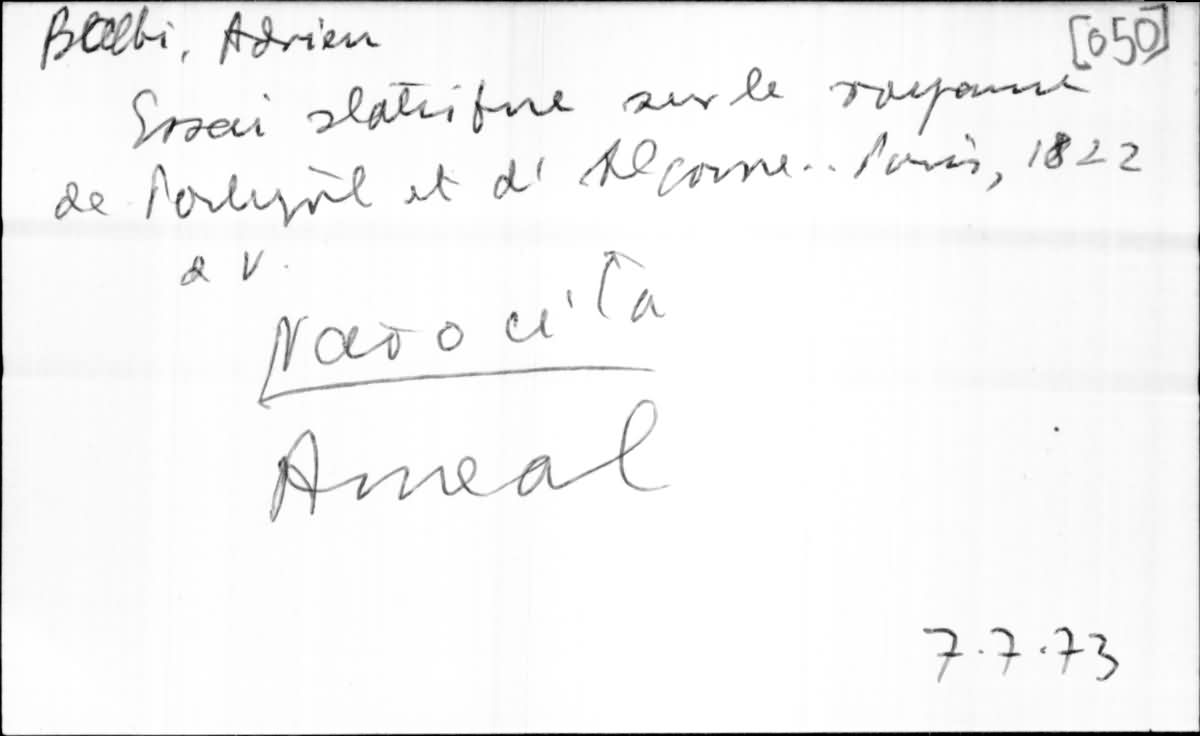 Balbi, Adrien [050]
Essai statistique sur le royaume
de Portugal et d'Algarve.. Paris, 1822
2 v.
Não o cita
Ameal
7.7.73